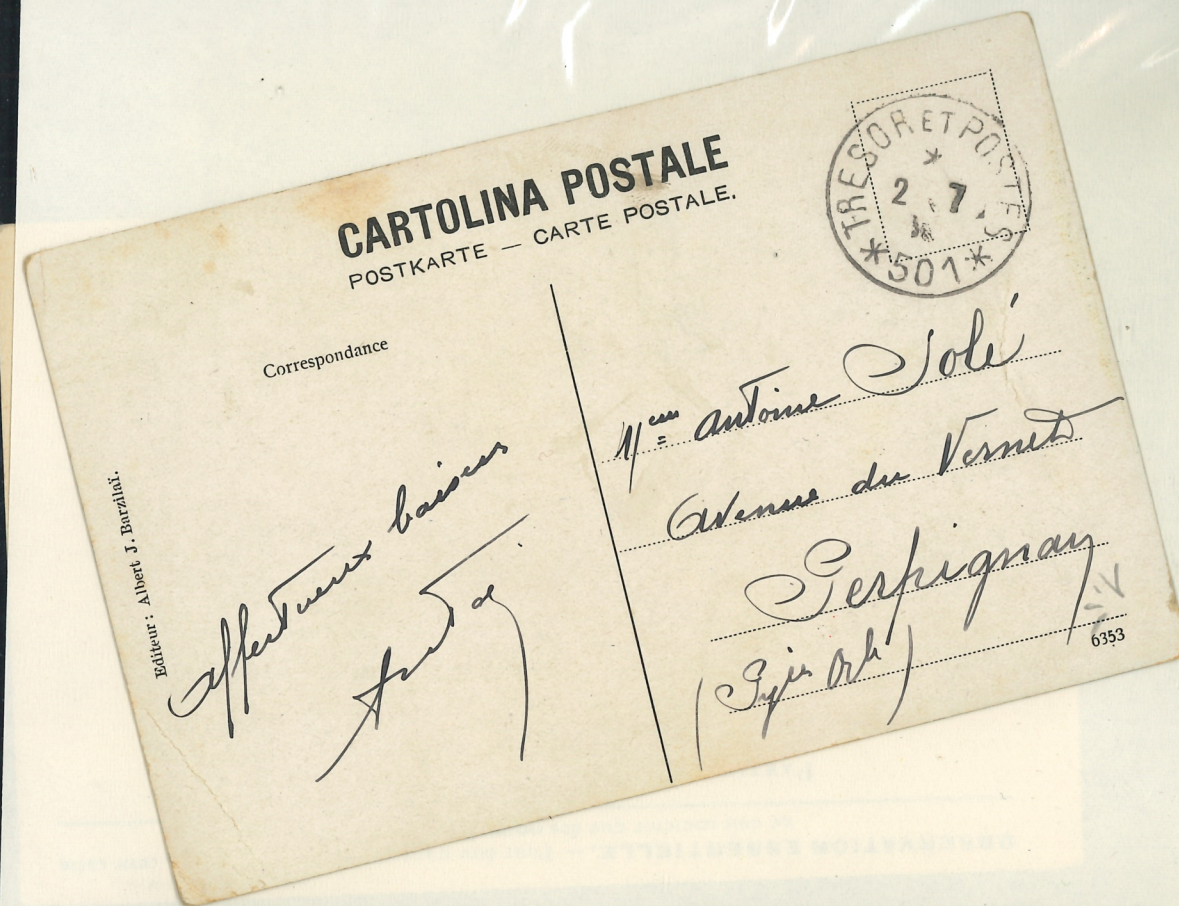 CARTOLINA POSTALE
POSTKARTE — CARTE POSTALE.
TRESOR ET POSTES
2 7
* 501 *
Correspondance
Editeur : Albert J. Barzilaï.
affectueux baisers
Mme Antoine Solé
Avenue du Vernet
Perpignan
(Pyées Orles)
6353
OBSERVATION ESSENTIELLE.